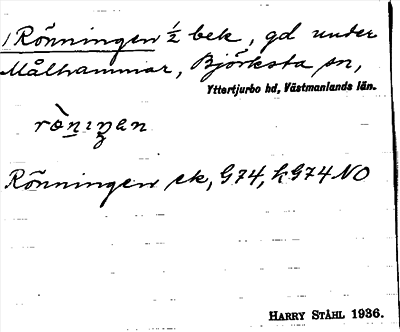 Rönningen ½ bek, gd under
Målhammar, Björksta sn,
Yttertjurbo hd, Västmanlands län.
Rönningen ek, G74, kG74 NO
HARRY STÅHL 1936.